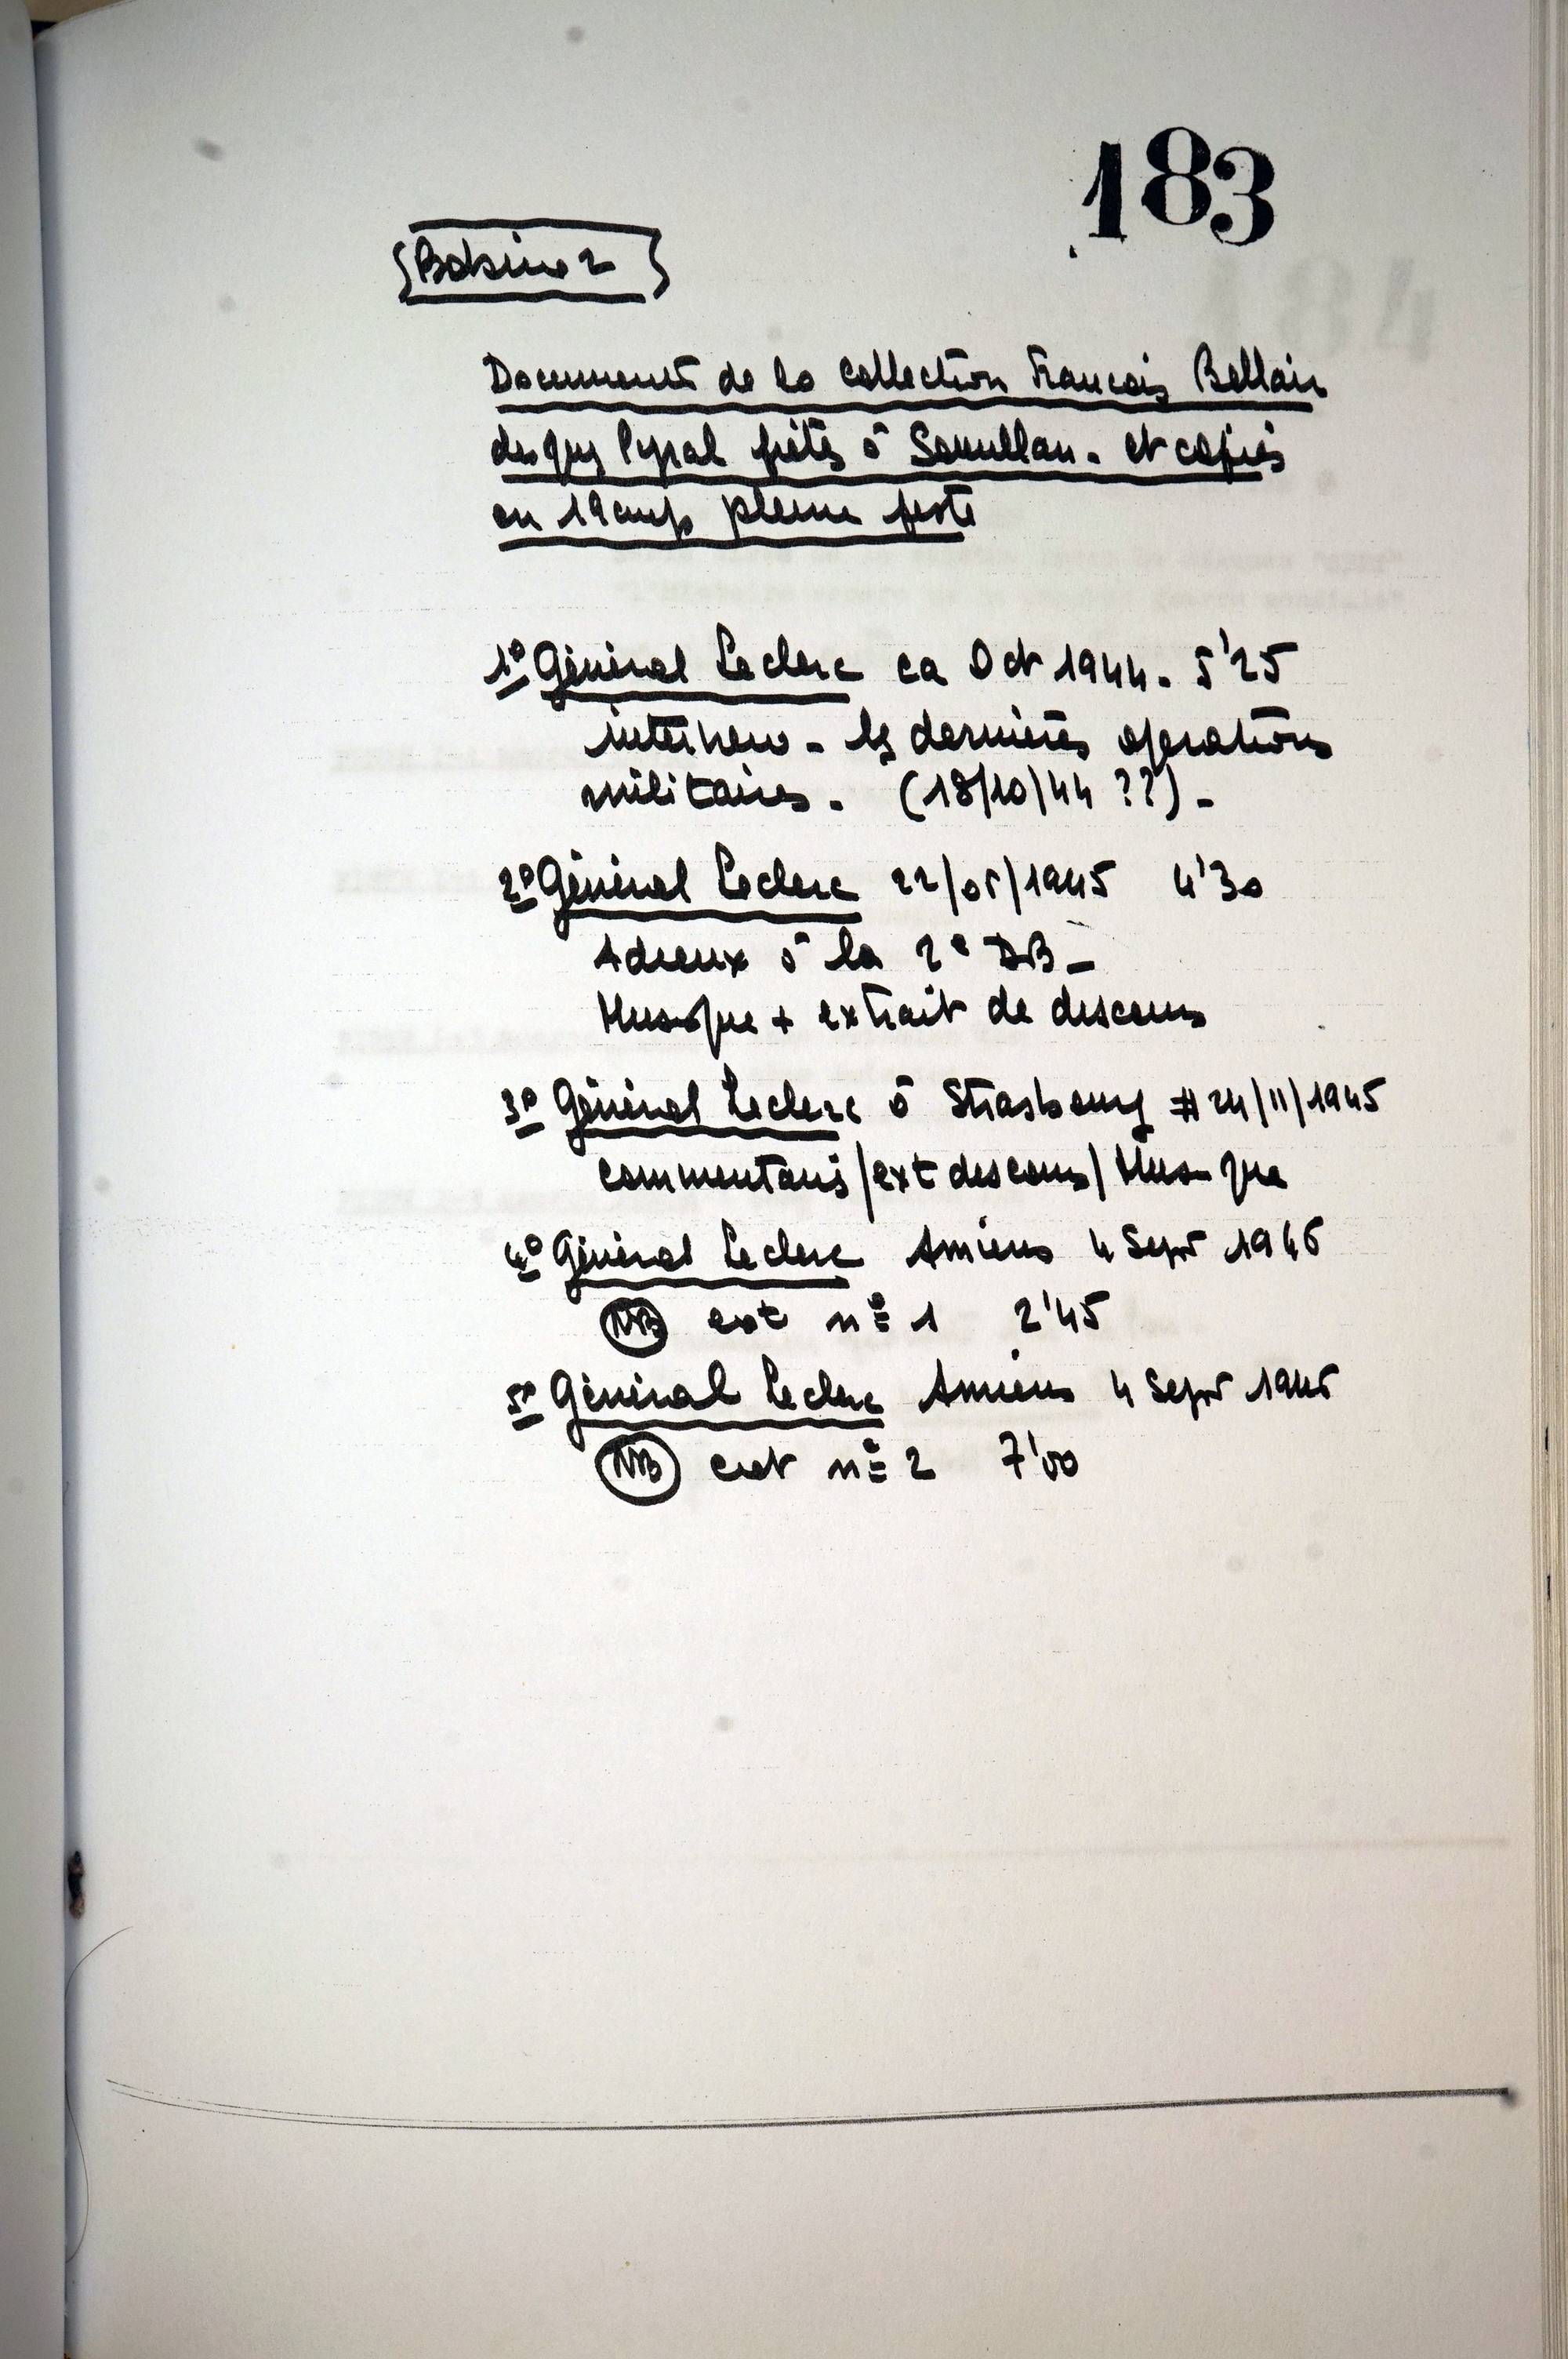 183
Bobine 2
Documents de la collection Francois Bellair
disques Pyral prêtés à Soumillan - et copiés
en 19cm/s pleine piste
1° Général Leclerc ca Oct 1944 - 5'25
interview - les dernières opérations
militaires. (18/10/44 ??) -
2° Général Leclerc 22/05/1945 4'30
Adieux à la 2e DB -
Musique + extrait de discours
3° Général Leclerc à Strasbourg # 24/11/1945
commentaires/ext discours/Musique
4° Général Leclerc Amiens 4 Sept 1946
NB ext n° 1 2'45
5° Général Leclerc Amiens 4 Sept
NB ext n° 2 7'00